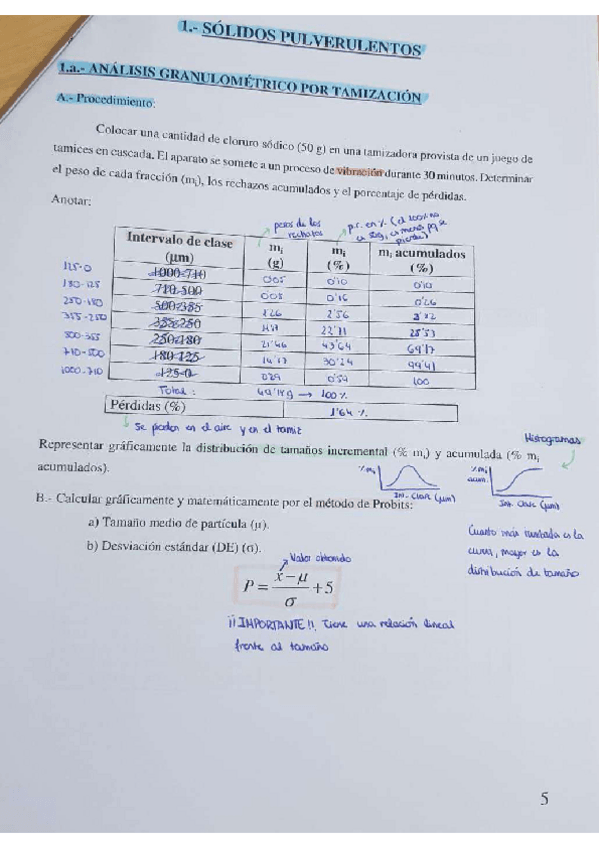 1.- SÓLIDOS PULVERULENTOS
1.a.- ANÁLISIS GRANULOMÉTRICO POR TAMIZACIÓN
A.- Procedimiento:
Colocar una cantidad de cloruro sódico (50 g) en una tamizadora provista de un juego de
tamices en cascada. El aparato se somete a un proceso de vibración durante 30 minutos. Determinar
el peso de cada fracción (mi), los rechazos acumulados y el porcentaje de pérdidas.
Anotar:
pesos de los rechazos
p.r. en % (el 100% no es 50g, es menos pq se pierde)
Intervalo de clase (µm) mi (g) mi (%) mi acumulados (%)
125-0 1000-710 0'05 0'10 0'10
180-125 710-500 0'08 0'16 0'26
250-180 500-355 1'26 2'56
355-250 355-250 22'71 25'53
500-355 250-180 21'46 43'64 69'17
710-500 180-125 30'24 99'41
1000-710 125-0 0'29 0'59 100
Total: → 100%
Pérdidas (%) 1'64 %
Se pierden en el aire y en el tamiz
Histogramas
Representar gráficamente la distribución de tamaños incremental (% mi) y acumulada (% mi
acumulados).
%mi
Int. Clase (µm)
%mi acum.
Int. Clase (µm)
B.- Calcular gráficamente y matemáticamente por el método de Probits:
a) Tamaño medio de partícula (µ).
b) Desviación estándar (DE) (σ).
Cuanto más tumbada es la
curva, mayor es la
distribución de tamaño
Valor obtenido
P = x − µ / σ + 5
¡¡IMPORTANTE!! Tiene una relación lineal
frente al tamaño
5